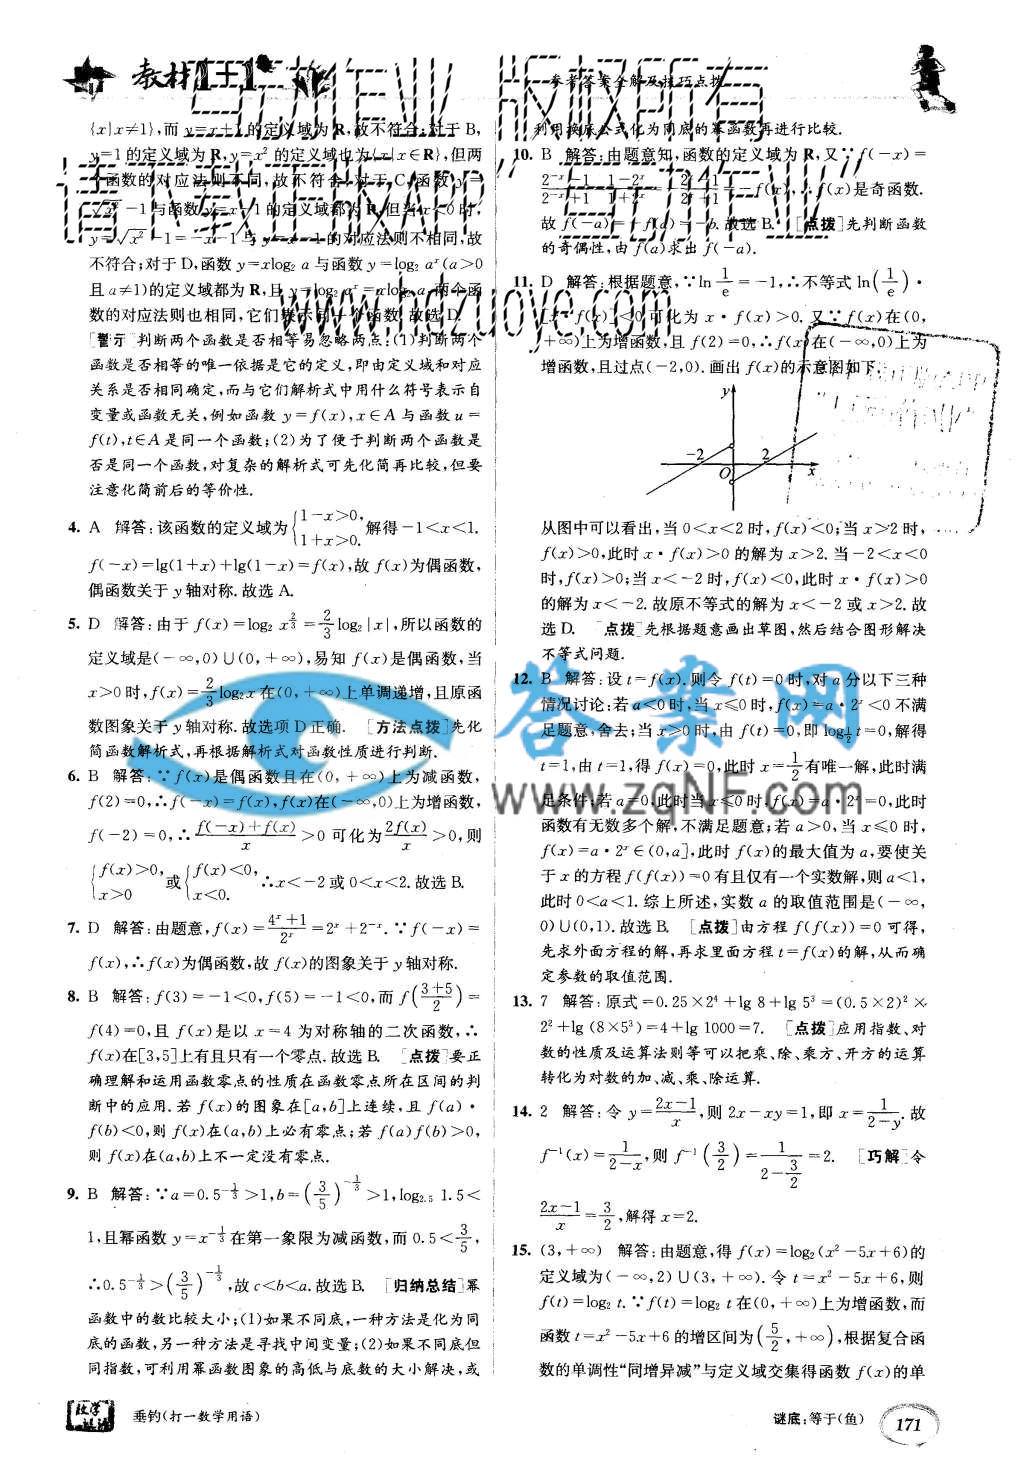 教材1+1
参考答案全解及技巧点拨
{x|x≠1},而 y=x+1的定义域为 R,故不符合;对于 B,
y=1的定义域为 R,y=x² 的定义域也为{x|x∈R},但两
个函数的对应法则不同,故不符合;对于 C,函数 y=
√x²-1与函数 y=x-1的定义域都为 R,但当x<0时,
y=√x²-1=-x-1与 y=x-1的对应法则不相同,故
不符合;对于 D,函数 y=xlog₂ a与函数 y=log₂ aˣ(a>0
且 a≠1)的定义域都为 R,且 y=log₂ aˣ=xlog₂ a,两个函
数的对应法则也相同,它们表示同一个函数.故选 D.
[警示]判断两个函数是否相等易忽略两点:(1)判断两个
函数是否相等的唯一依据是它的定义,即由定义域和对应
关系是否相同确定,而与它们解析式中用什么符号表示自
变量或函数无关,例如函数 y=f(x),x∈A 与函数 u=
f(t),t∈A 是同一个函数;(2)为了便于判断两个函数是
否是同一个函数,对复杂的解析式可先化简再比较,但要
注意化简前后的等价性.
4. A 解答:该函数的定义域为{1-x>0, 1+x>0. 解得-1<x<1.
f(-x)=lg(1+x)+lg(1-x)=f(x),故 f(x)为偶函数,
偶函数关于 y轴对称.故选 A.
5. D 解答:由于 f(x)=log₂ x^(2/3)=2/3 log₂|x|,所以函数的
定义域是(-∞,0)∪(0,+∞),易知 f(x)是偶函数,当
x>0时,f(x)=2/3 log₂x在(0,+∞)上单调递增,且原函
数图象关于 y轴对称.故选项 D正确. [方法点拨]先化
简函数解析式,再根据解析式对函数性质进行判断.
6. B 解答:∵f(x)是偶函数且在(0,+∞)上为减函数,
f(2)=0,∴f(-x)=f(x),f(x)在(-∞,0)上为增函数,
f(-2)=0,∴(f(-x)+f(x))/x>0 可化为 2f(x)/x>0,则
{f(x)>0, x>0 或{f(x)<0, x<0. ∴x<-2或0<x<2.故选 B.
7. D 解答:由题意,f(x)=(4ˣ+1)/2ˣ=2ˣ+2⁻ˣ.∵f(-x)=
f(x),∴f(x)为偶函数,故 f(x)的图象关于 y轴对称.
8. B 解答:f(3)=-1<0,f(5)=-1<0,而 f((3+5)/2)=
f(4)=0,且 f(x)是以 x=4 为对称轴的二次函数,∴
f(x)在[3,5]上有且只有一个零点.故选 B. [点拨]要正
确理解和运用函数零点的性质在函数零点所在区间的判
断中的应用.若 f(x)的图象在[a,b]上连续,且 f(a)·
f(b)<0,则 f(x)在(a,b)上必有零点;若 f(a)f(b)>0,
则 f(x)在(a,b)上不一定没有零点.
9. B 解答:∵a=0.5^(-1/3)>1,b=(3/5)^(-1/3)>1,log₂.₅ 1.5<
1,且幂函数 y=x^(-1/3)在第一象限为减函数,而 0.5<3/5,
∴0.5^(-1/3)>(3/5)^(-1/3),故 c<b<a.故选 B. [归纳总结]幂
函数中的数比较大小:(1)如果不同底,一种方法是化为同
底的函数,另一种方法是寻找中间变量;(2)如果不同底但
同指数,可利用幂函数图象的高低与底数的大小解决,或
利用换底公式化为同底的幂函数再进行比较.
10. B 解答:由题意知,函数的定义域为 R,又∵f(-x)=
(2⁻ˣ-1)/(2⁻ˣ+1)=(1-2ˣ)/(1+2ˣ)=-(2ˣ-1)/(2ˣ+1)=-f(x),∴f(x)是奇函数.
故 f(-a)=-f(a)=-b.故选 B. [点拨]先判断函数
的奇偶性,由 f(a)求出 f(-a).
11. D 解答:根据题意,∵ln 1/e=-1,∴不等式 ln(1/e)·
[x·f(x)]<0可化为 x·f(x)>0.又∵f(x)在(0,
+∞)上为增函数,且 f(2)=0,∴f(x)在(-∞,0)上为
增函数,且过点(-2,0).画出 f(x)的示意图如下.
y
-2
2
O
x
从图中可以看出,当 0<x<2 时,f(x)<0;当 x>2 时,
f(x)>0,此时 x·f(x)>0 的解为 x>2.当-2<x<0
时,f(x)>0;当 x<-2时,f(x)<0,此时 x·f(x)>0
的解为 x<-2.故原不等式的解为 x<-2 或 x>2.故
选 D. [点拨]先根据题意画出草图,然后结合图形解决
不等式问题.
12. B 解答:设 t=f(x).则令 f(t)=0时,对a分以下三种
情况讨论:若a<0时,当 x≤0时,f(x)=a·2ˣ<0不满
足题意,舍去;当 x>0时,由 f(t)=0,即 log½ t=0,解得
t=1,由 t=1,得 f(x)=0,此时 x=1/2 有唯一解,此时满
足条件;若 a=0,此时当 x≤0时,f(x)=a·2ˣ=0,此时
函数有无数多个解,不满足题意;若 a>0,当 x≤0 时,
f(x)=a·2ˣ∈(0,a],此时 f(x)的最大值为 a,要使关
于 x 的方程 f(f(x))=0有且仅有一个实数解,则 a<1,
此时 0<a<1.综上所述,实数 a 的取值范围是(-∞,
0)∪(0,1).故选 B. [点拨]由方程 f(f(x))=0可得,
先求外面方程的解,再求里面方程 t=f(x)的解,从而确
定参数的取值范围.
13. 7 解答:原式=0.25×2⁴+lg 8+lg 5³=(0.5×2)²×
2²+lg(8×5³)=4+lg 1000=7. [点拨]应用指数、对
数的性质及运算法则等可以把乘、除、乘方、开方的运算
转化为对数的加、减、乘、除运算.
14. 2 解答:令 y=(2x-1)/x,则 2x-xy=1,即 x=1/(2-y).故
f⁻¹(x)=1/(2-x),则 f⁻¹(3/2)=1/(2-3/2)=2. [巧解]令
(2x-1)/x=3/2,解得 x=2.
15. (3,+∞) 解答:由题意,得 f(x)=log₂(x²-5x+6)的
定义域为(-∞,2)∪(3,+∞).令 t=x²-5x+6,则
f(t)=log₂ t.∵f(t)=log₂ t在(0,+∞)上为增函数,而
函数 t=x²-5x+6的增区间为(5/2,+∞),根据复合函
数的单调性“同增异减”与定义域交集得函数 f(x)的单
垂钓(打一数学用语)
谜底:等于(鱼)
171
答案网
www.zqNF.com
www.hdzuoye.com